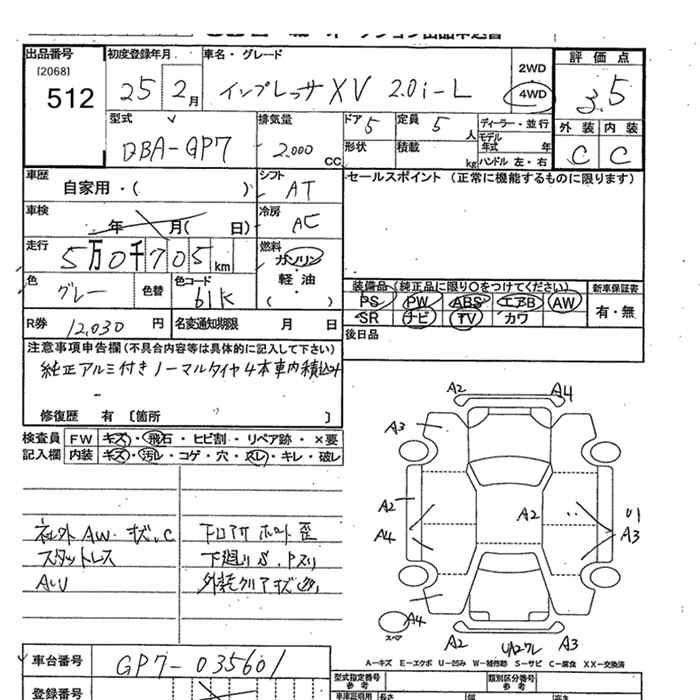 出品番号
[2068]
512
初度登録年月
25 2月
車名・グレード
インプレッサXV 2.0i-L
2WD
4WD
評価点
3.5
外装 内装
C C
型式
DBA-GP7
排気量
2.000 CC
ドア 5
定員 5 人
形状
積載 kg
ディーラー・並行
モデル年式 年
ハンドル 左・右
車歴
自家用・( )
シフト
AT
セールスポイント (正常に機能するものに限ります)
車検
年 月( 日)
冷房
AC
走行
5万0千705km
燃料
ガソリン
軽油
( )
色
グレー
色替
色コード
61K
装備品(純正品に限り○をつけてください)
PS PW ABS エアB AW
SR ナビ TV カワ
新車保証書
有・無
R券 12,030 円
名変通知期限 月 日
後日品
注意事項申告欄(不具合内容等は具体的に記入して下さい)
純正アルミ付きノーマルタイヤ4本車内積込み
修復歴 有 [箇所 ]
検査員記入欄
FW キズ・飛石・ヒビ割・リペア跡・×要
内装 キズ・汚レ・コゲ・穴・スレ・キレ・破レ
社外AW・キズ.C
スタットレス
下回りS.Pスリ
A2
A4
A3
A2
A4
A2
U1
A3
A4
スペア
A2
A3
A-キズ E-エクボ U-凹み W-補修跡 S-サビ C-腐食 XX-交換済
車台番号
GP7-035601
登録番号
型式指定番号
参考
類別区分番号
参考
車庫証明用
長さ
幅
高さ